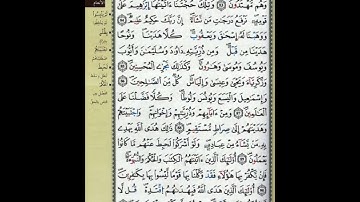 وَهُم مُّهْتَدُونَ وَتِلْكَ حُجَّتُنَآ ءَاتَيْنَٰهَآ إِبْرَٰهِيمَ عَلَىٰ
قَوْمِهِۦ نَرْفَعُ دَرَجَٰتٍ مَّن نَّشَآءُ إِنَّ رَبَّكَ حَكِيمٌ عَلِيمٌ
وَوَهَبْنَا لَهُۥٓ إِسْحَٰقَ وَيَعْقُوبَ كُلًّا هَدَيْنَا وَنُوحًا
هَدَيْنَا مِن قَبْلُ وَمِن ذُرِّيَّتِهِۦ دَاوُۥدَ وَسُلَيْمَٰنَ وَأَيُّوبَ
وَيُوسُفَ وَمُوسَىٰ وَهَٰرُونَ وَكَذَٰلِكَ نَجْزِى ٱلْمُحْسِنِينَ
وَزَكَرِيَّا وَيَحْيَىٰ وَعِيسَىٰ وَإِلْيَاسَ كُلٌّ مِّنَ ٱلصَّٰلِحِينَ
وَإِسْمَٰعِيلَ وَٱلْيَسَعَ وَيُونُسَ وَلُوطًا وَكُلًّا فَضَّلْنَا عَلَى
ٱلْعَٰلَمِينَ وَمِنْ ءَابَآئِهِمْ وَذُرِّيَّٰتِهِمْ وَإِخْوَٰنِهِمْ وَٱجْتَبَيْنَٰهُمْ
وَهَدَيْنَٰهُمْ إِلَىٰ صِرَٰطٍ مُّسْتَقِيمٍ ذَٰلِكَ هُدَى ٱللَّهِ يَهْدِى
بِهِۦ مَن يَشَآءُ مِنْ عِبَادِهِۦ وَلَوْ أَشْرَكُوا۟ لَحَبِطَ عَنْهُم مَّا كَانُوا۟
يَعْمَلُونَ أُو۟لَٰٓئِكَ ٱلَّذِينَ ءَاتَيْنَٰهُمُ ٱلْكِتَٰبَ وَٱلْحُكْمَ وَٱلنُّبُوَّةَ
فَإِن يَكْفُرْ بِهَا هَٰٓؤُلَآءِ فَقَدْ وَكَّلْنَا بِهَا قَوْمًا لَّيْسُوا۟ بِهَا بِكَٰفِرِينَ
أُو۟لَٰٓئِكَ ٱلَّذِينَ هَدَى ٱللَّهُ فَبِهُدَىٰهُمُ ٱقْتَدِهْ قُل لَّآ